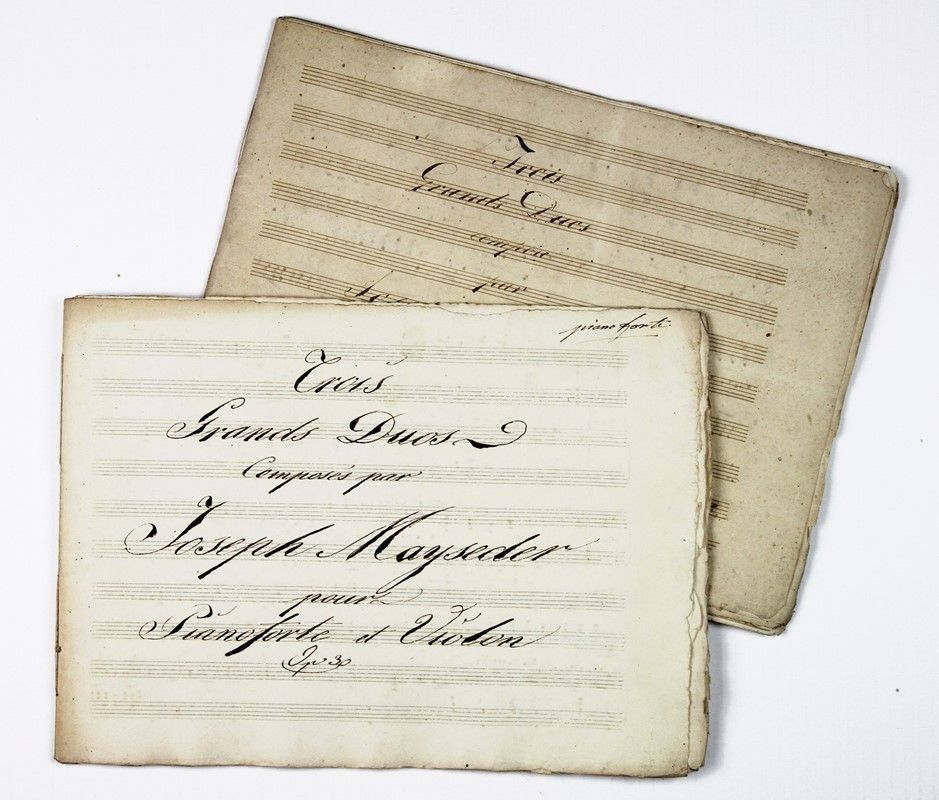 Trois
Grands Duos
compose
par
Jo
piano forte
Trois
Grands Duos
Composés par
Joseph Mayseder
pour
Pianoforte et Violon
Op 30